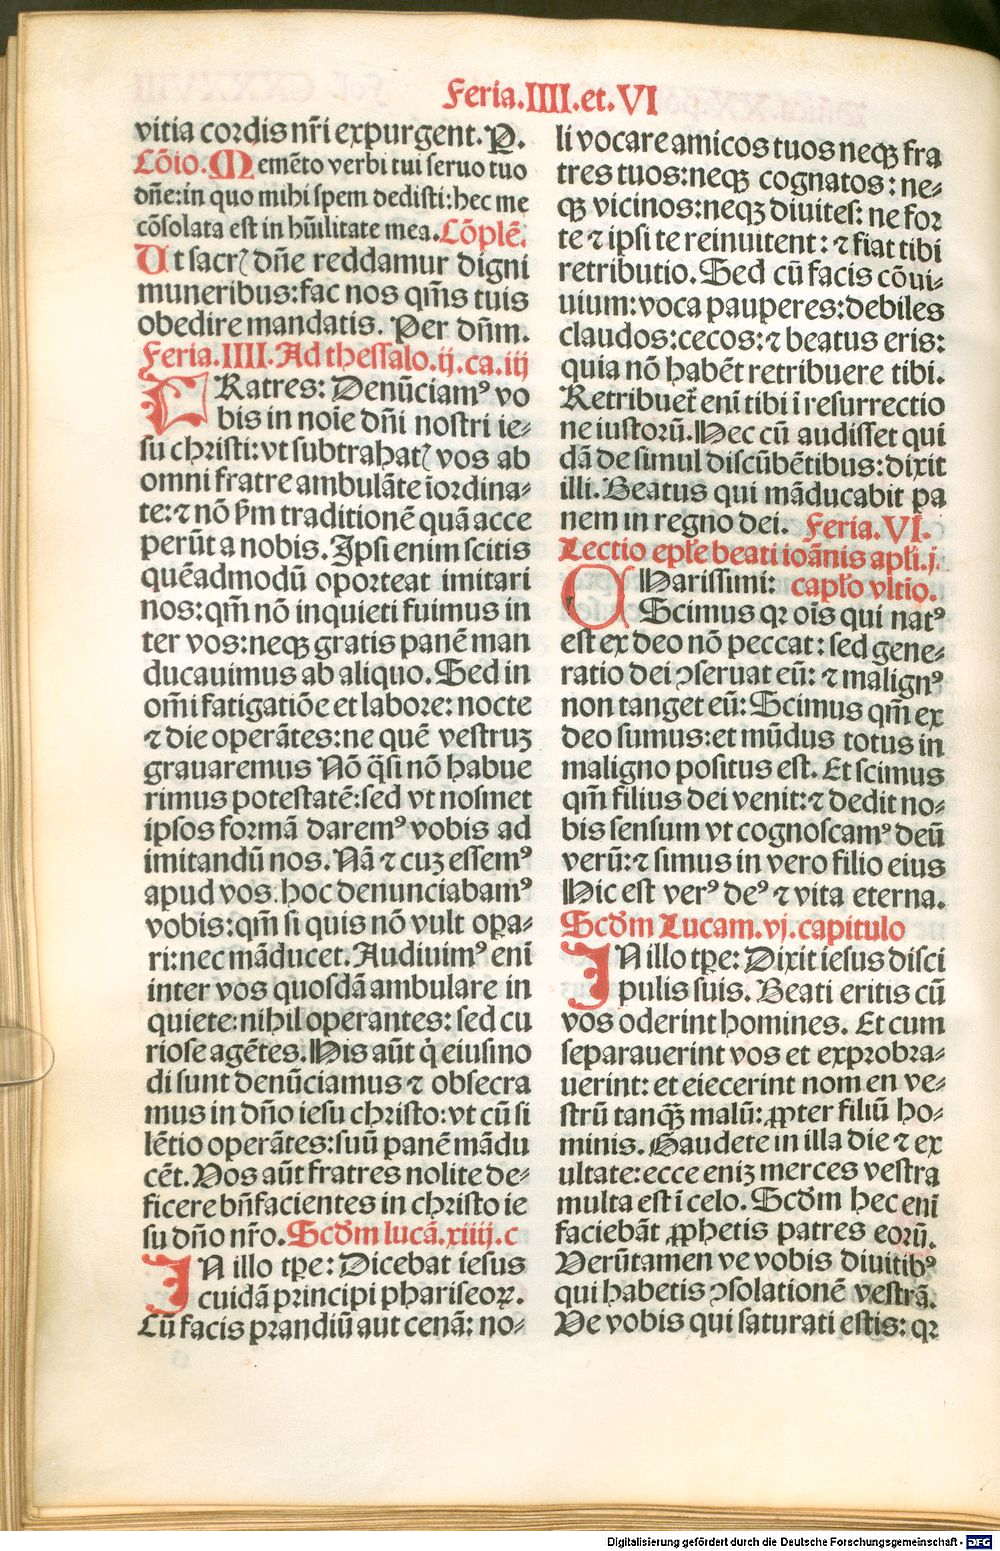 Feria.IIII.et.VI
vitia cordis nr̄i expurgent. P.
Cōio. Memēto verbi tui seruo tuo
dn̄e: in quo mihi spem dedisti: hec me
cōsolata est in hūilitate mea. Cōplē.
Ut sacrꝭ dn̄e reddamur digni
muneribus: fac nos qm̄s tuis
obedire mandatis. Per dn̄m.
Feria.IIII. Ad thessalo.ij.ca.iij
FRatres: Denūciamꝰ vo
bis in noīe dn̄i nostri ie⸗
su christi: vt subtrahatꝭ vos ab
omni fratre ambulāte īordina⸗
te: ⁊ nō ẜm traditionē quā acce
perūt a nobis. Ipsi enim scitis
quēadmodū oporteat imitari
nos: qm̄ nō inquieti fuimus in
ter vos: neqꝫ gratis panē man
ducauimus ab aliquo. Sed in
om̄i fatigatiōe et labore: nocte
⁊ die operātes: ne quē vestruꝫ
grauaremus Nō q̄si nō habue
rimus potestatē: sed vt nosmet
ipsos formā daremꝰ vobis ad
imitandū nos. Nā ⁊ cuꝫ essemꝰ
apud vos. hoc denunciabamꝰ
vobis: qm̄ si quis nō vult opa̱⸗
ri: nec māducet. Audiuimꝰ enī
inter vos quosdā ambulare in
quiete: nihil operantes: sed cu
riose agētes. His aūt q̇ eiusmo
di sunt denūciamus ⁊ obsecra
mus in dn̄o iesu christo: vt cū si
lētio operātes: suū panē mādu
cēt. Vos aūt fratres nolite de⸗
ficere bn̄facientes in christo ie
su dn̄o nr̄o. Scd̄m lucā.xiiij.c
IN illo tpe̱: Dicebat iesus
cuidā principi phariseoꝝ.
Cū facis prandiū aut cenā: no⸗
li vocare amicos tuos neqꝫ fra
tres tuos: neqꝫ cognatos: ne⸗
qꝫ vicinos: neqꝫ diuites: ne for
te ⁊ ipsi te reinuitent: ⁊ fiat tibi
retributio. Sed cū facis cōui⸗
uium: voca pauperes: debiles
claudos: cecos: ⁊ beatus eris:
quia nō habēt retribuere tibi.
Retribuet̄ enī tibi ī resurrectio
ne iustorū. Hec cū audisset qui
dā de simul discūbētibus: dixit
illi. Beatus qui māducabit pa
nem in regno dei. Feria.VI.
Lectio epl̄e beati ioānis apl̄i.j.
capl̄o vltio.
CHarissimi:
Scimus qꝛ oīs qui natꝰ
est ex deo nō peccat: sed gene⸗
ratio dei ꝯseruat eū: ⁊ malignꝰ
non tanget eū: Scimus qm̄ ex
deo sumus: et mūdus totus in
maligno positus est. Et scimus
qm̄ filius dei venit: ⁊ dedit no⸗
bis sensum vt cognoscamꝰ deū
verū: ⁊ simus in vero filio eius
Hic est verꝰ deꝰ ⁊ vita eterna.
Scd̄m Lucam.vj.capitulo
IN illo tpe̱: Dixit iesus disci
pulis suis. Beati eritis cū
vos oderint homines. Et cum
separauerint vos et exprobra⸗
uerint: et eiecerint nomen ve⸗
strū tanqꝫ̄ malū: ꝓpter filiū ho⸗
minis. Gaudete in illa die ⁊ ex
ultate: ecce eniꝫ merces vestra
multa est ī celo. Scd̄m hec enī
faciebāt ꝓphetis patres eorū.
Verūtamen ve vobis diuitibꝰ
qui habetis ꝯsolationē vestrā.
Ve vobis qui saturati estis: qꝛ
Digitalisierung gefördert durch die Deutsche Forschungsgemeinschaft - DFG